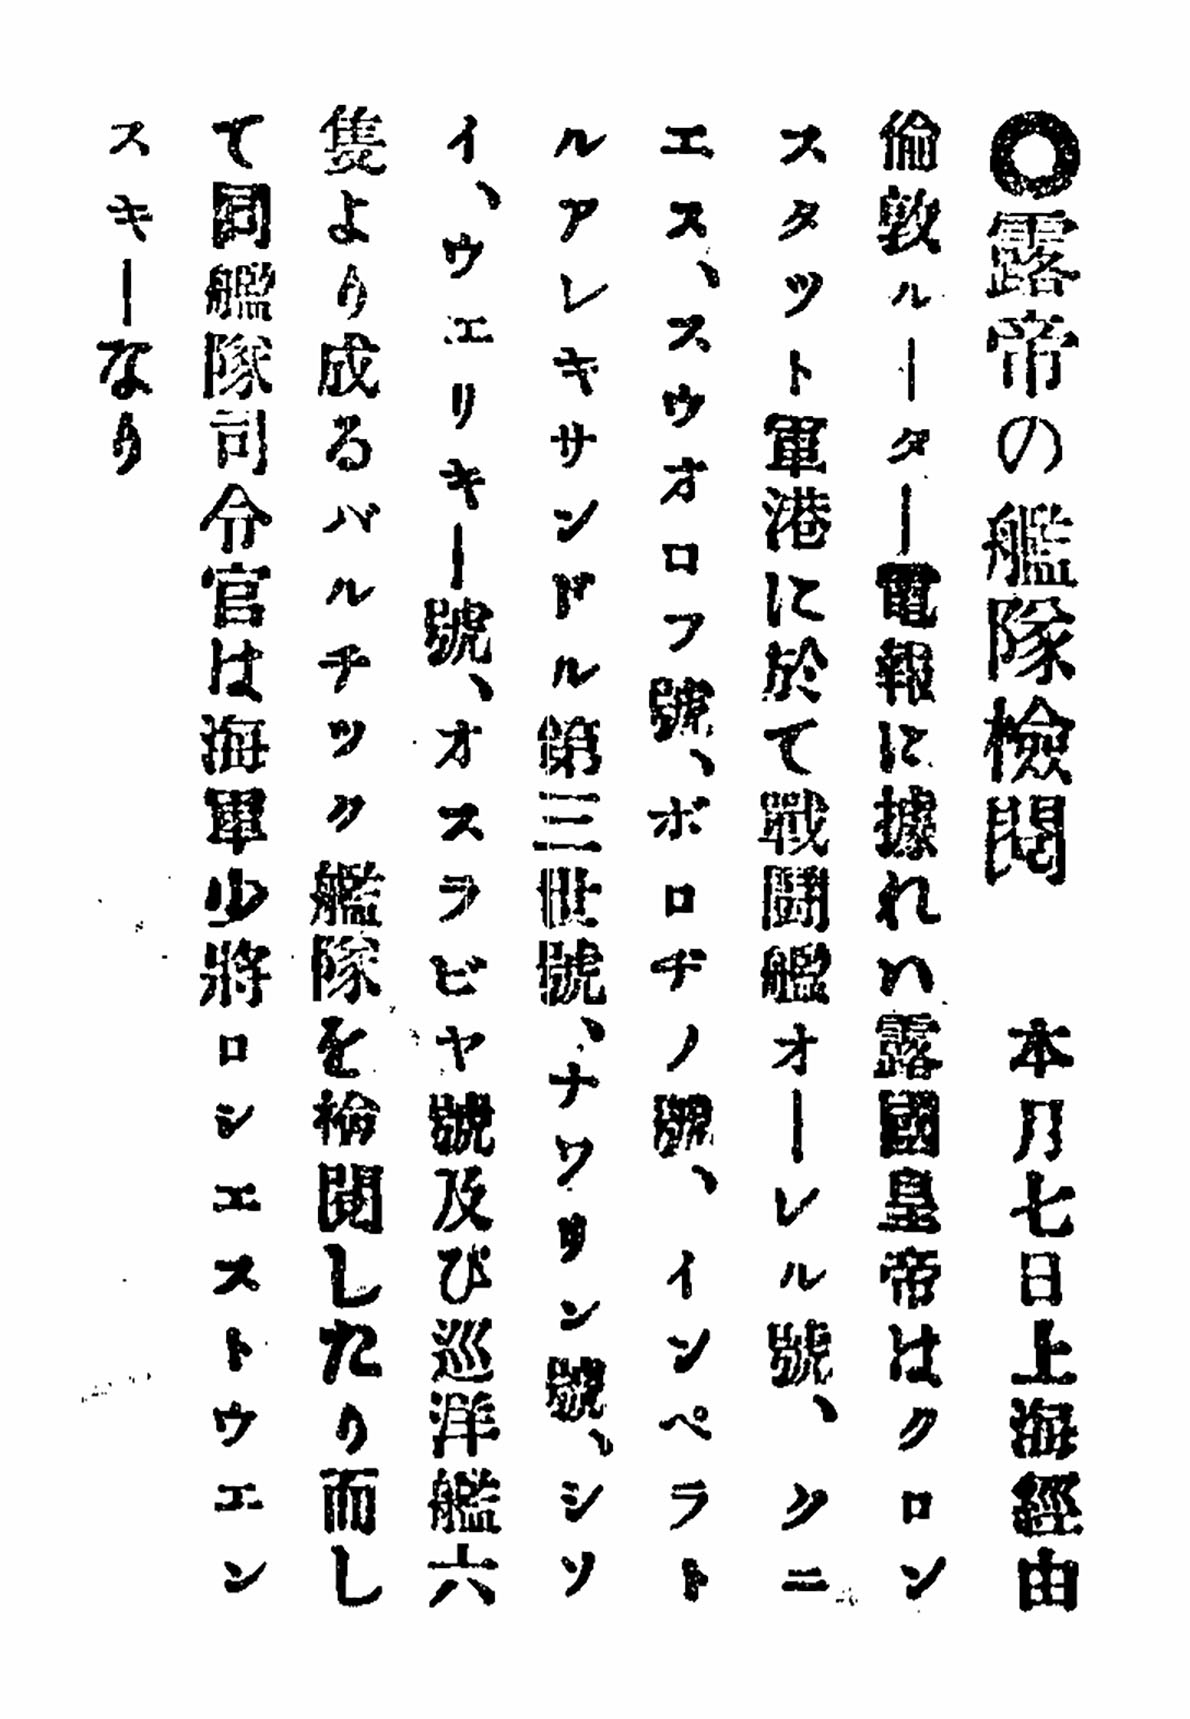 〇露帝の艦隊檢閲　本月七日上海經由
倫敦ルーター電報に據れハ露國皇帝はクロン
スタット軍港に於て戰鬪艦オーレル號、クニ
エス、スウオロフ號、ボロヂノ號、インペラト
ルアレキサンドル第三世號、ナワリン號、シソ
イ、ウエリキー號、オスラビヤ號及び巡洋艦六
隻より成るバルチック艦隊を檢閲したり而し
て同艦隊司令官は海軍少將ロシエストウエン
スキーなり